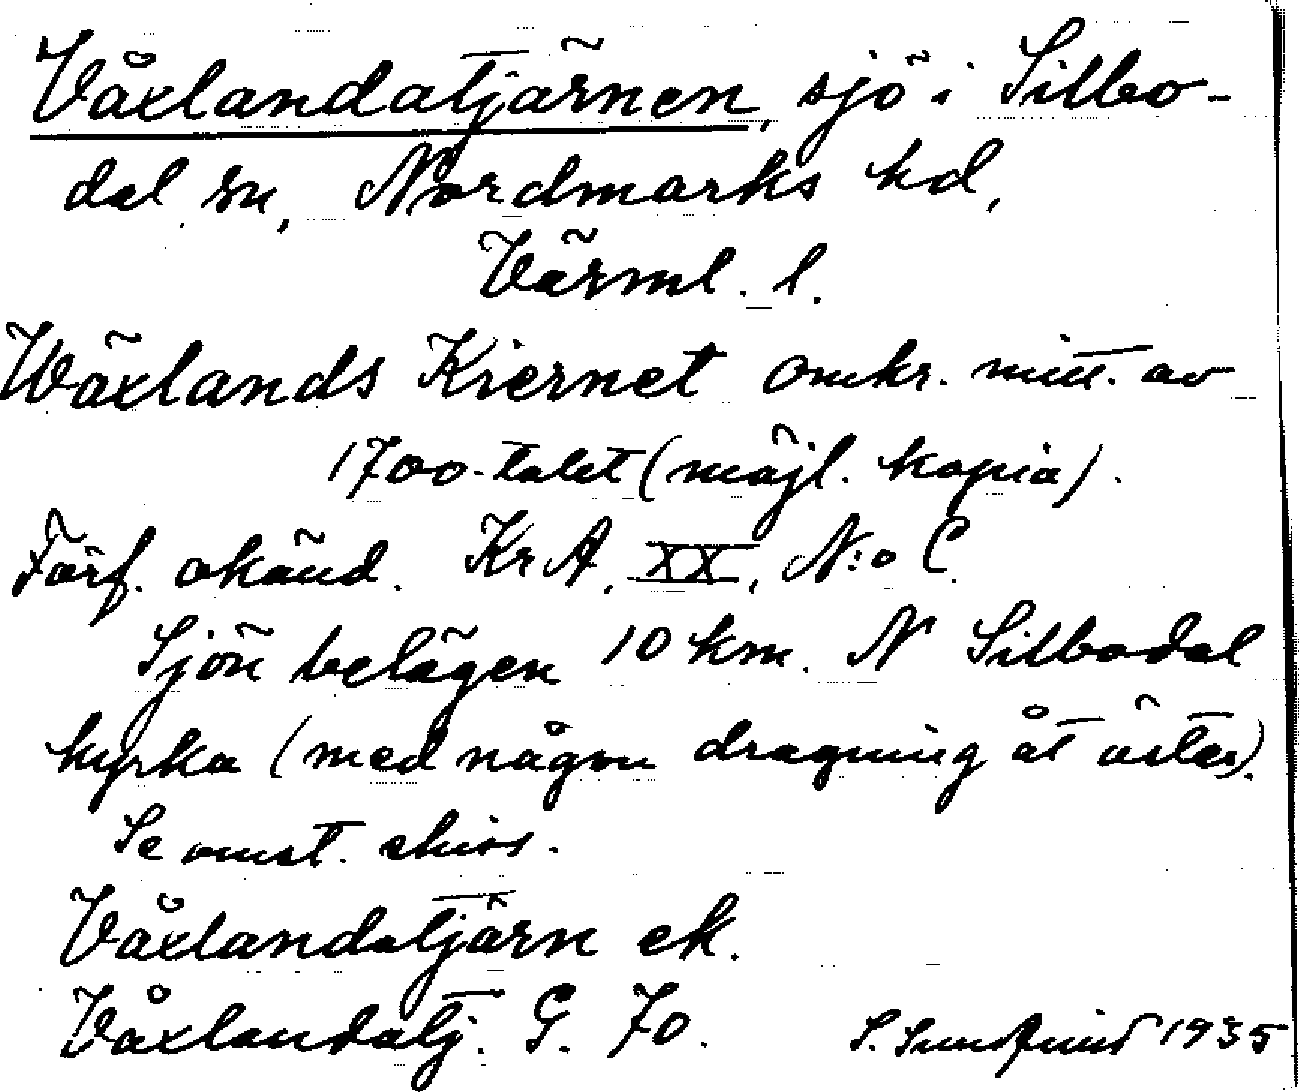 Våxlandatjärnen, sjö i Silbo-
dal sn, Nordmarks hd,
Värml. l.
Wäxlands Kiernet omkr. mitt. av
1700-talet (möjl. kopia).
Förf. okänd. KrA, XX, N:o C.
Sjön belägen 10 km. N Silbodal
kyrka (med någon dragning åt öster).
Se omst. skiss.
Våxlandatjärn ek.
Våxlandatj. G. 70. S. Sundquist 1935